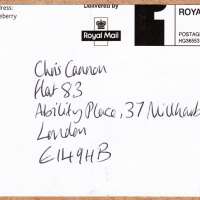 dress:
eberry
Delivered by
Royal Mail
1
ROYA
POSTAGE
HQ86853
Chris Cannon
Flat 83
Ability Place, 37 Millharb
London
E149HB